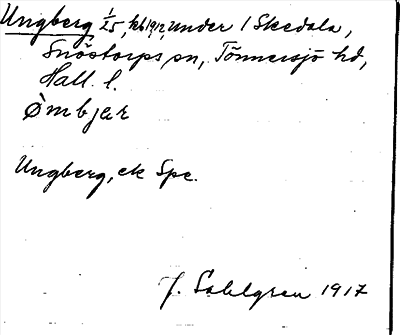 Ungberg 1/25, kb 1912, under 1 Skedala,
Snöstorps sn, Tönnersjö hd,
Hall. l.
Ømbjar
Ungberg, ek Spc.
J. Sahlgren 1917